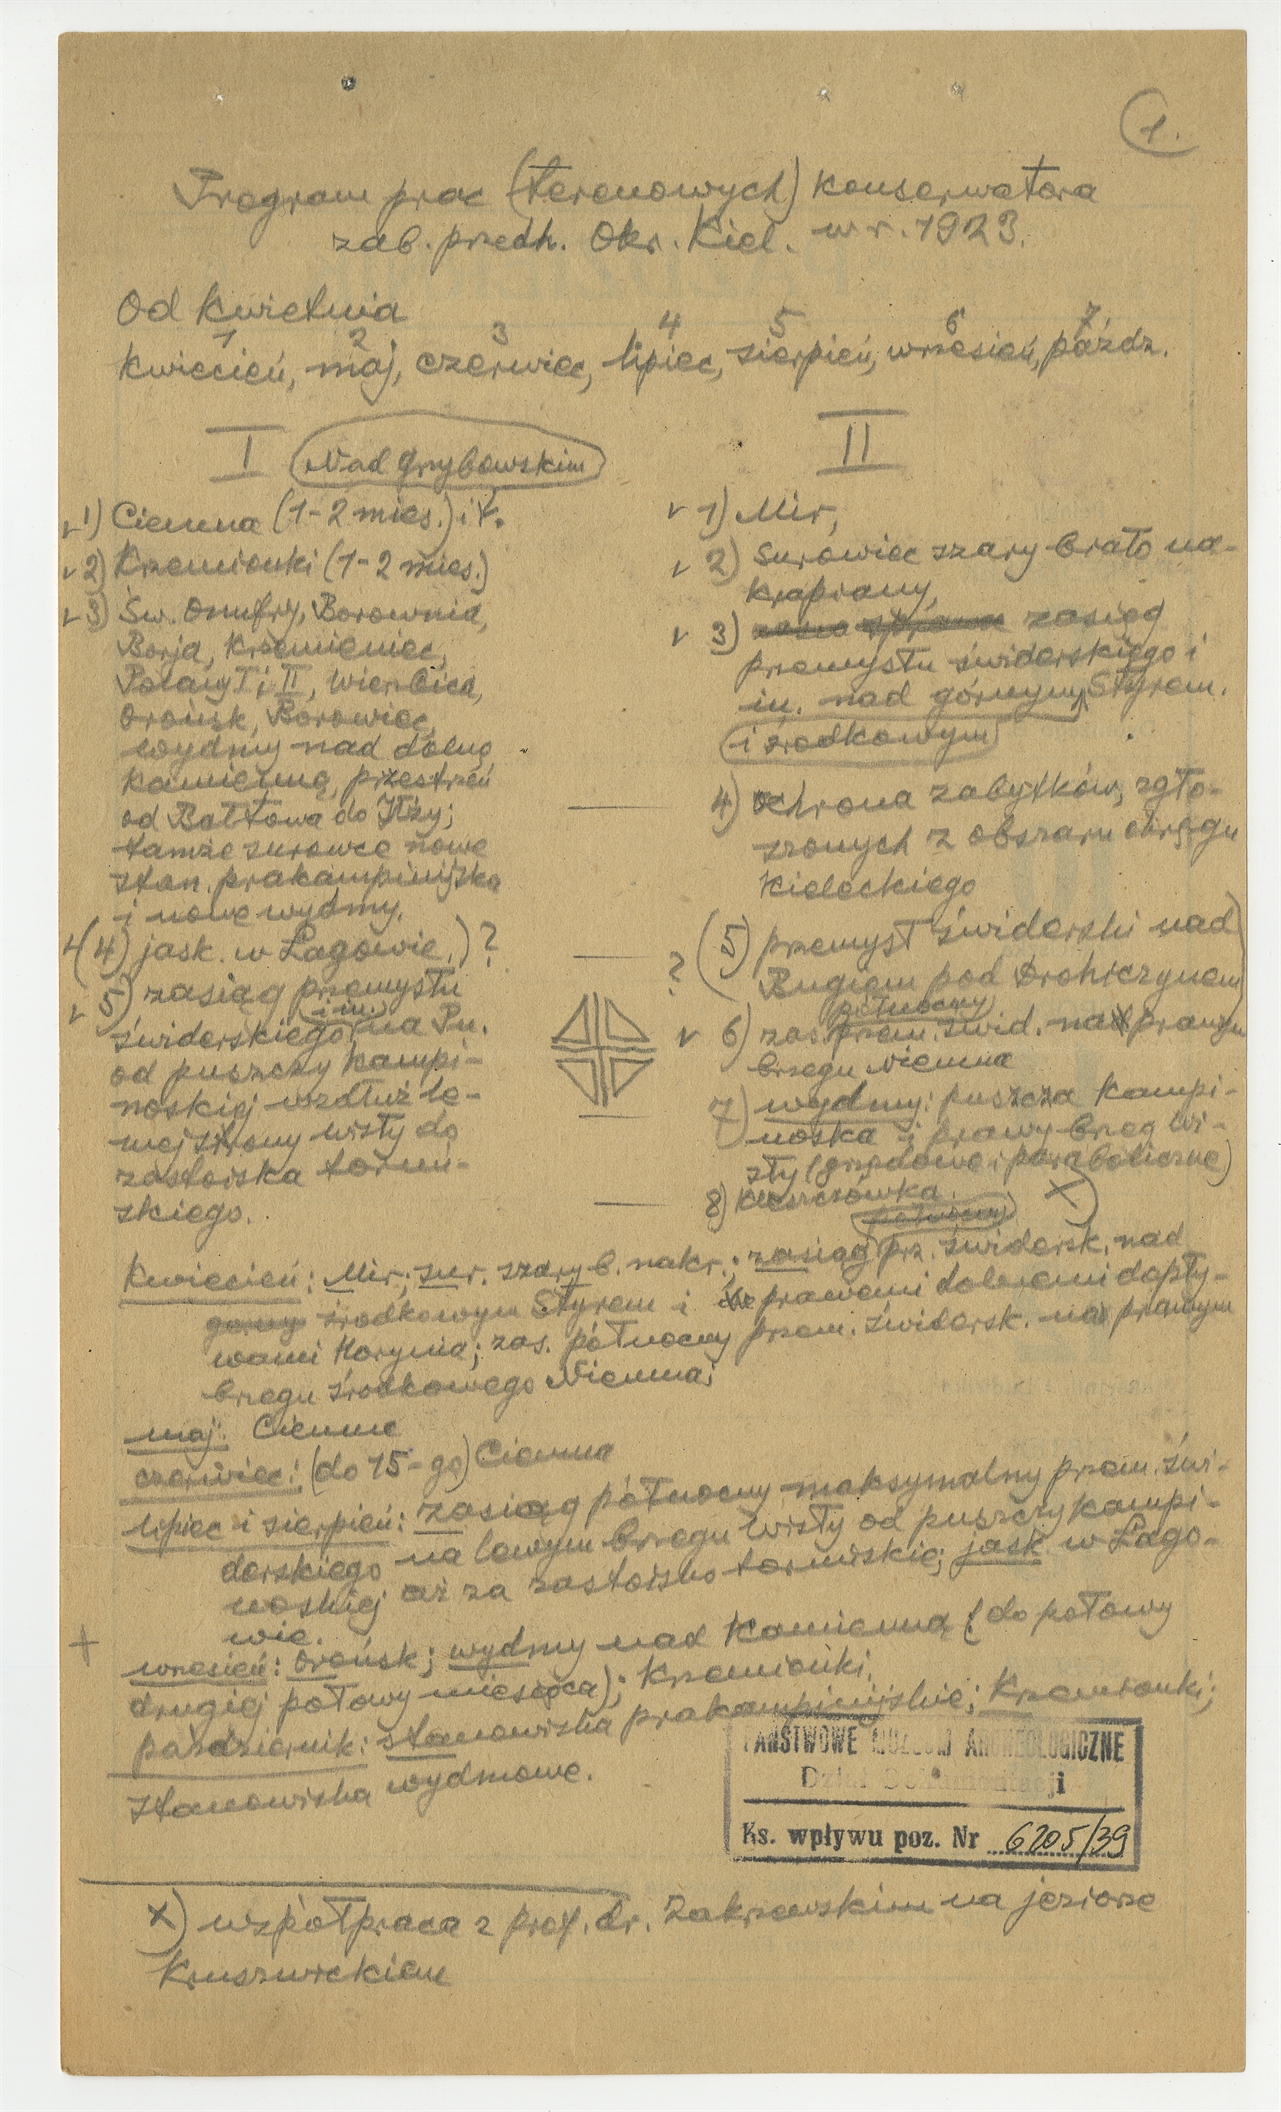 1.
Program prac (terenowych) konserwatora
zab. przedh. Okr. Kiel. w r. 1923.
Od kwietnia
1 2 3 4 5 6 7
Kwiecień, maj, czerwiec, lipiec, sierpień, wrzesień, paźdz.
I Nad Grzybowskim
✓ 1) Ciemna (1-2 mies.) i
✓ 2) Krzemionki (1-2 mies.)
✓ 3) Św. Onufry, Borownia,
Borja, Krzemieniec,
Polany I i II, Wierzbica,
Orońsk, Borowiec,
wydmy nad dolną
Kamienną, przestrzeń
od Bałtowa do Iłży;
tamże surowce nowe
stan. prakampinijskie
i nowe wydmy.
✓ (4) jask. w Łagowie.) ?
✓ 5) zasiąg przemysłu
świderskiego i in. na Pn.
od puszczy Kampi-
noskiej wzdłuż le-
wej strony Wisły do
zastoiska toruń-
skiego.
II
✓ 1) Mir,
✓ 2) surowiec szary biało na-
krapiany,
✓ 3) zasiąg
przemysłu świderskiego i
in. nad górnym Styrem.
i środkowym
4) ochrona zabytków, zgło-
szonych z obszaru okręgu
Kieleckiego
? (5) przemysł świderski nad
Bugiem pod Drohiczynem)
północny
✓ 6) zas. przem. świd. na prawym
brzegu Niemna
7) wydmy: puszcza Kampi-
noska i prawy brzeg Wi-
sły (grzędowe i paraboliczne)
8) Kleszczówka. X)
północny
Kwiecień: Mir; sur. szary b. nakr.; zasiąg prz. świdersk. nad
górnym środkowym Styrem i prawemi dolnemi dopły-
wami Horynia; zas. północny przem. świdersk. na prawym
brzegu środkowego Niemna;
maj: Ciemna
czerwiec: (do 15-go) Ciemna
lipiec i sierpień: zasiąg północny maksymalny przem. świ-
derskiego na lewym brzegu Wisły od puszczy Kampi-
noskiej aż za zastoisko toruńskie; jask. w Łago-
wie.
+ wrzesień: Orońsk; wydmy nad Kamienną (do połowy
drugiej połowy miesiąca); Krzemionki.
październik: stanowiska prakampinijskie; Krzemionki;
stanowiska wydmowe.
PAŃSTWOWE MUZEUM ARCHEOLOGICZNE
Dział Dokumentacji
Ks. wpływu poz. Nr 6205/39
X) współpraca z prof. dr. Zakrzewskim na jeziorze
Kruszwickiem